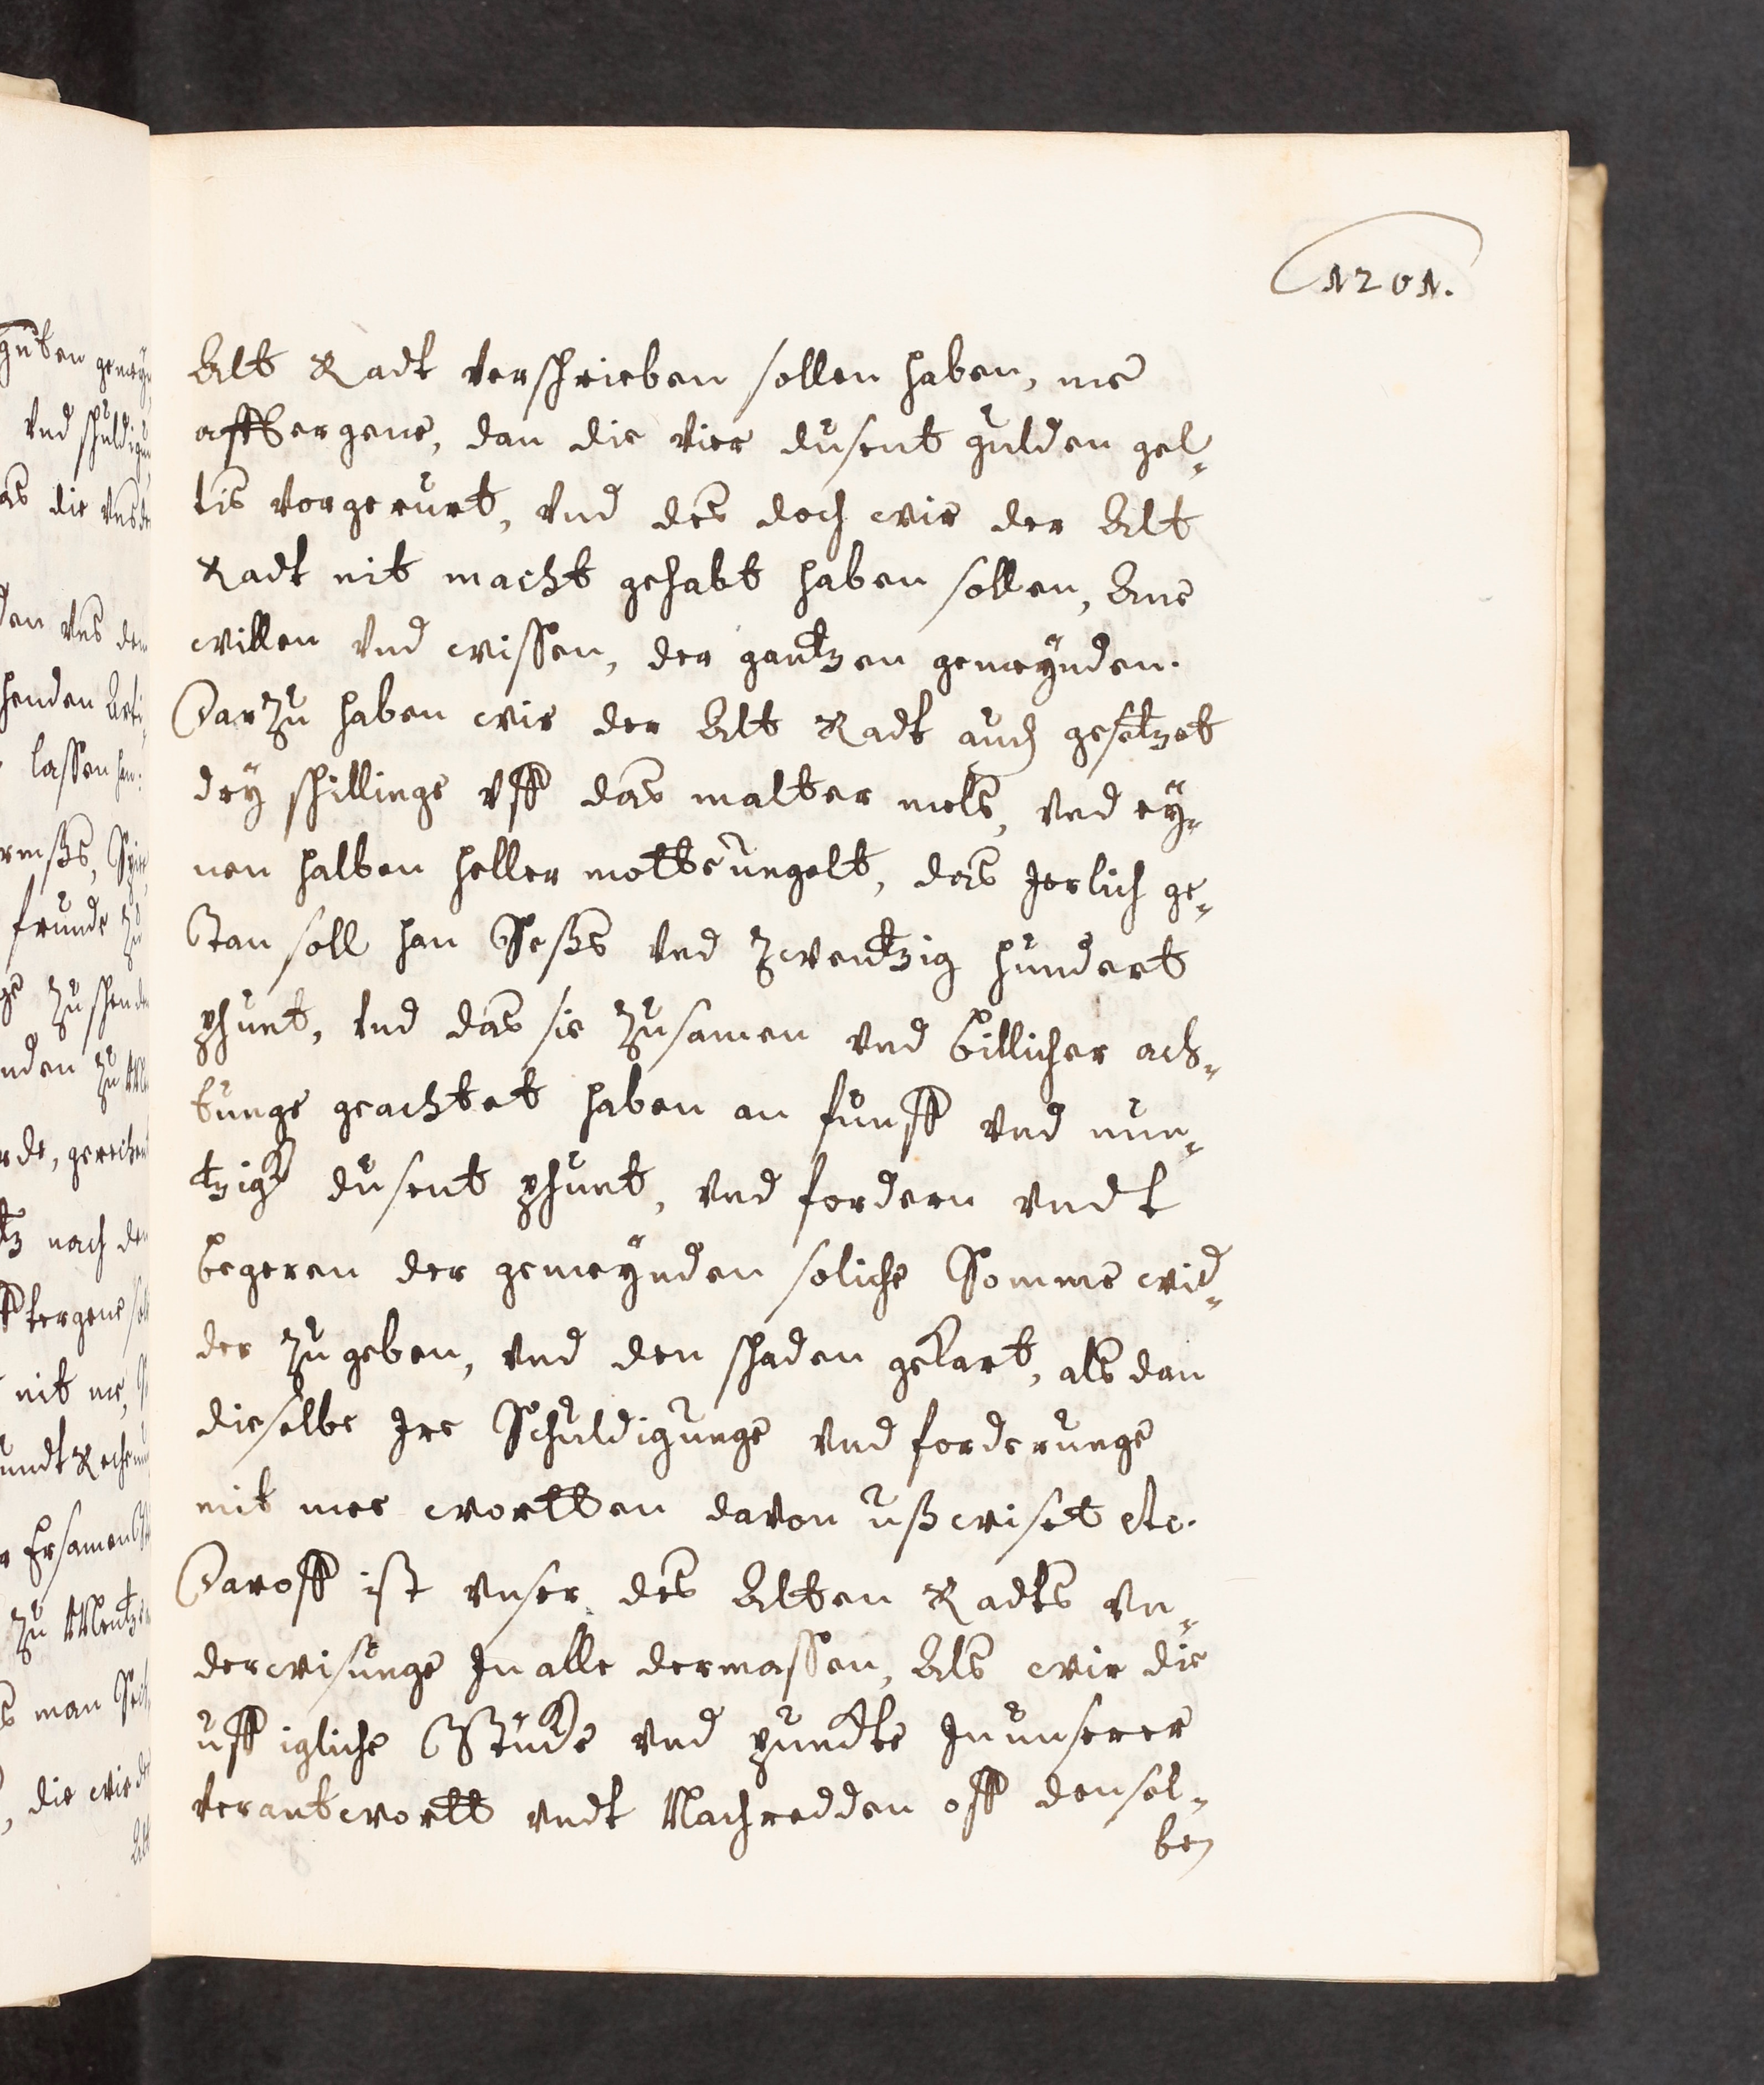 1201.
Alt Radt verschrieben sollen haben, me
afftergene, dan die vier dusent gulden gel¬
tis vorgerurt, vnd des doch wir der Alt
Radt nit macht gehabt haben sollen, Ane
willen vnd wissen, der gantzen gemeÿnden.
Darzu haben wir der Alt Radt auch gesetzet
dry schillinge vff das malter mels, vnd eÿ¬
nen halben heller motteungelt, das Jerlich ge¬
tan soll han Sehs vnd Zwentzig hundert
phunt, vnd das sie zusamen vnd billicher ach¬
tunge geachtet haben an funff vnd nun¬
tzigk dusent phunt, vnd fordern vndt
begeren der gemeÿnden soliche Somme wid¬
der zu geben, vnd den schaden gekart, als dan
dieselbe Ire Schuldigunge vnd forderunge
mit mee wortten davon ußwiset etc.
Daroff ist vnser des Alten Radts vn¬
derwisunge In alle dermassen, Als wir die
uff igliche Stucke vnd puncte In unserer
verantwortt vndt Nachredden off densel¬
ben